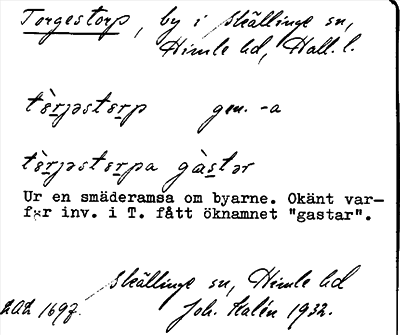 Torgestorp, by i Skällinge sn,
Himle hd, Hall. l.
tòrjəstòrp gen. -a
tòrjəstòrpa gàstər
Ur en smäderamsa om byarne. Okänt var-
för inv. i T. fått öknamnet "gastar".
Skällinge sn, Himle hd
Joh. Kalén 1932.